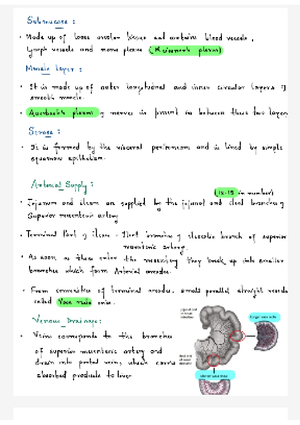 Submucosa :
• Made up of loose areolar tissue and contains blood vessels,
lymph vessels and nerve plexus (Meissner's plexus)
Muscle layer :
• It is made up of outer longitudinal and inner circular layers of
smooth muscle.
• Auerbach's plexus of nerves is present in between these two layers
Serosa :
• It is formed by the visceral peritoneum and is lined by simple
squamous epithelium.
Arterial Supply :
(12-15 in number)
• Jejunum and ileum are supplied by the jejunal and ileal branches of
Superior mesenteric artery
• Terminal Part of ileum - ileal branches of ileocolic branch of superior
mesenteric artery.
• As soon as these enter the mesentery they break up into smaller
branches which form Arterial arcades.
• From convexities of terminal arcades, small parallel straight vessels
called Vasa recta arise.
Venous Drainage :
• Veins corresponds to the branches
of superior mesenteric artery and
drain into portal vein, which carries
absorbed products to liver